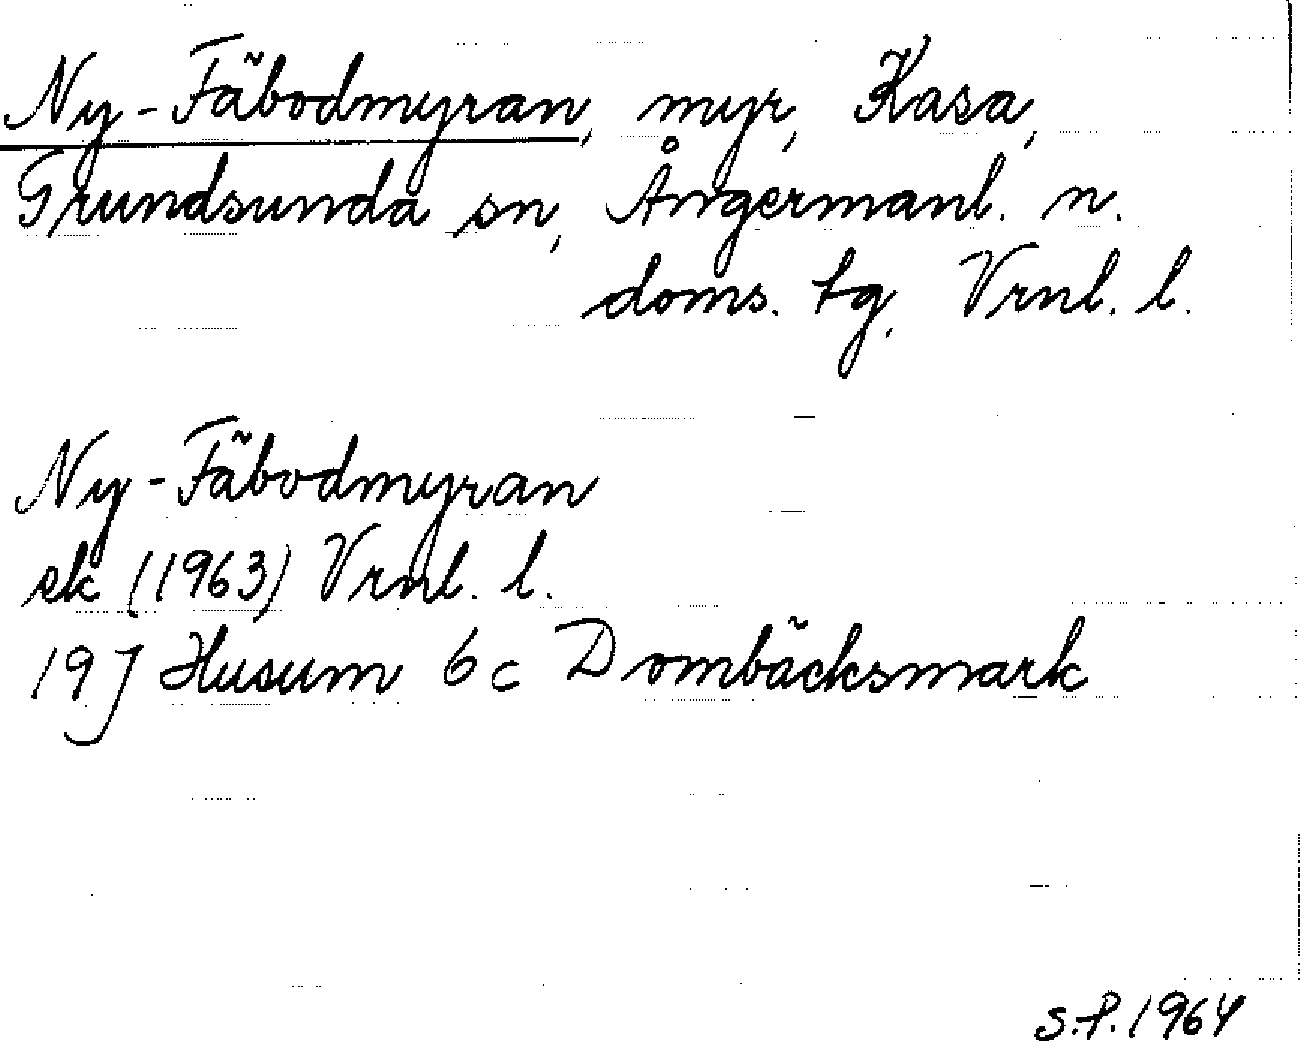 Ny-Fäbodmyran, myr, Kasa,
Grundsunda sn, Ångermanl. n.
doms. tg, Vrnl. l.
Ny-Fäbodmyran
ek (1963) Vrnl. l.
19J Husum 6c Dombäcksmark
S.P. 1964